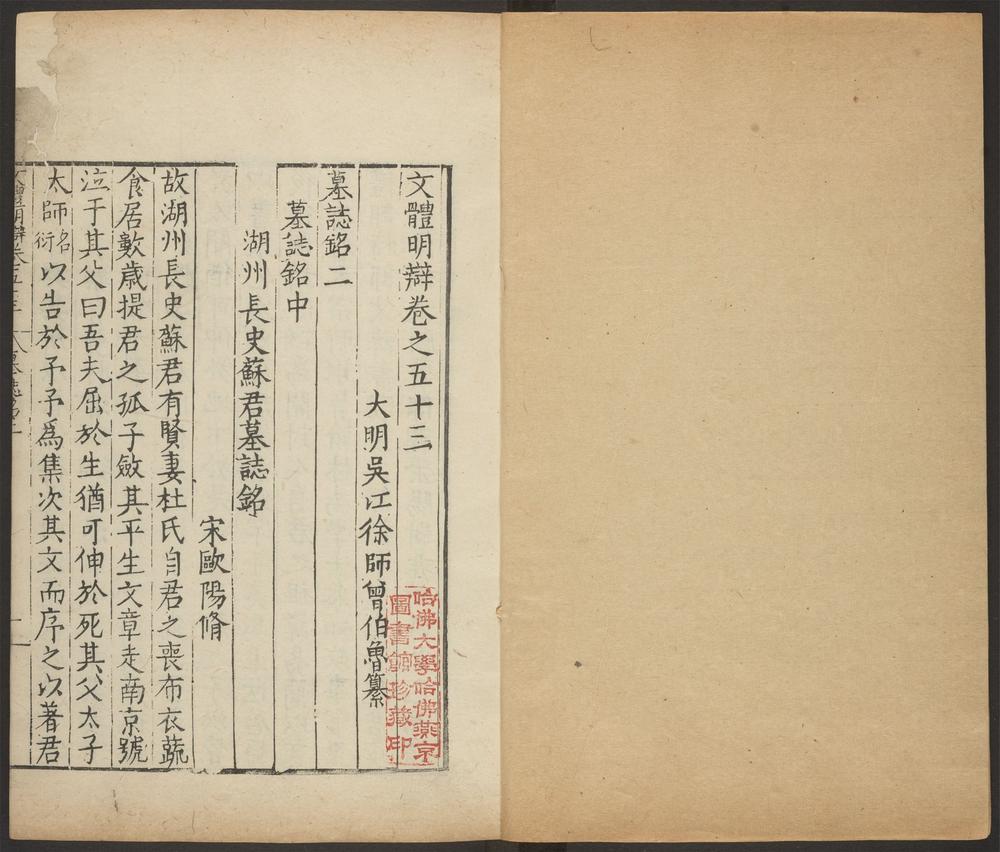 文體明辯卷之五十三
大明吳江徐師曾伯魯纂
墓誌銘二
墓誌銘中
湖州長史蘇君墓誌銘
宋歐陽脩
故湖州長史蘇君有賢妻杜氏自君之喪布衣蔬
食居數歲提君之孤子斂其平生文章走南京號
泣于其父曰吾夫屈於生猶可伸於死其父太子
太師名衍以告於予予為集次其文而序之以著君
文體明辯卷五十三
墓誌銘二
一
哈佛大學哈佛燕京
圖書館珍藏印